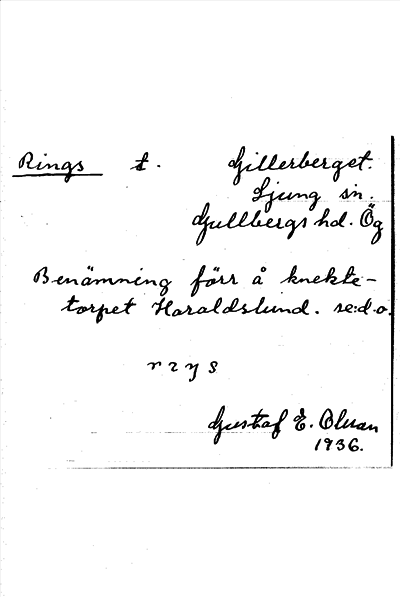 Rings t. Gillerberget.
Ljung sn.
Gullbergs hd. Ög
Benämning förr å knekte-
torpet Haraldslund. se:d.o.
Gustaf E. Olsson
1936.